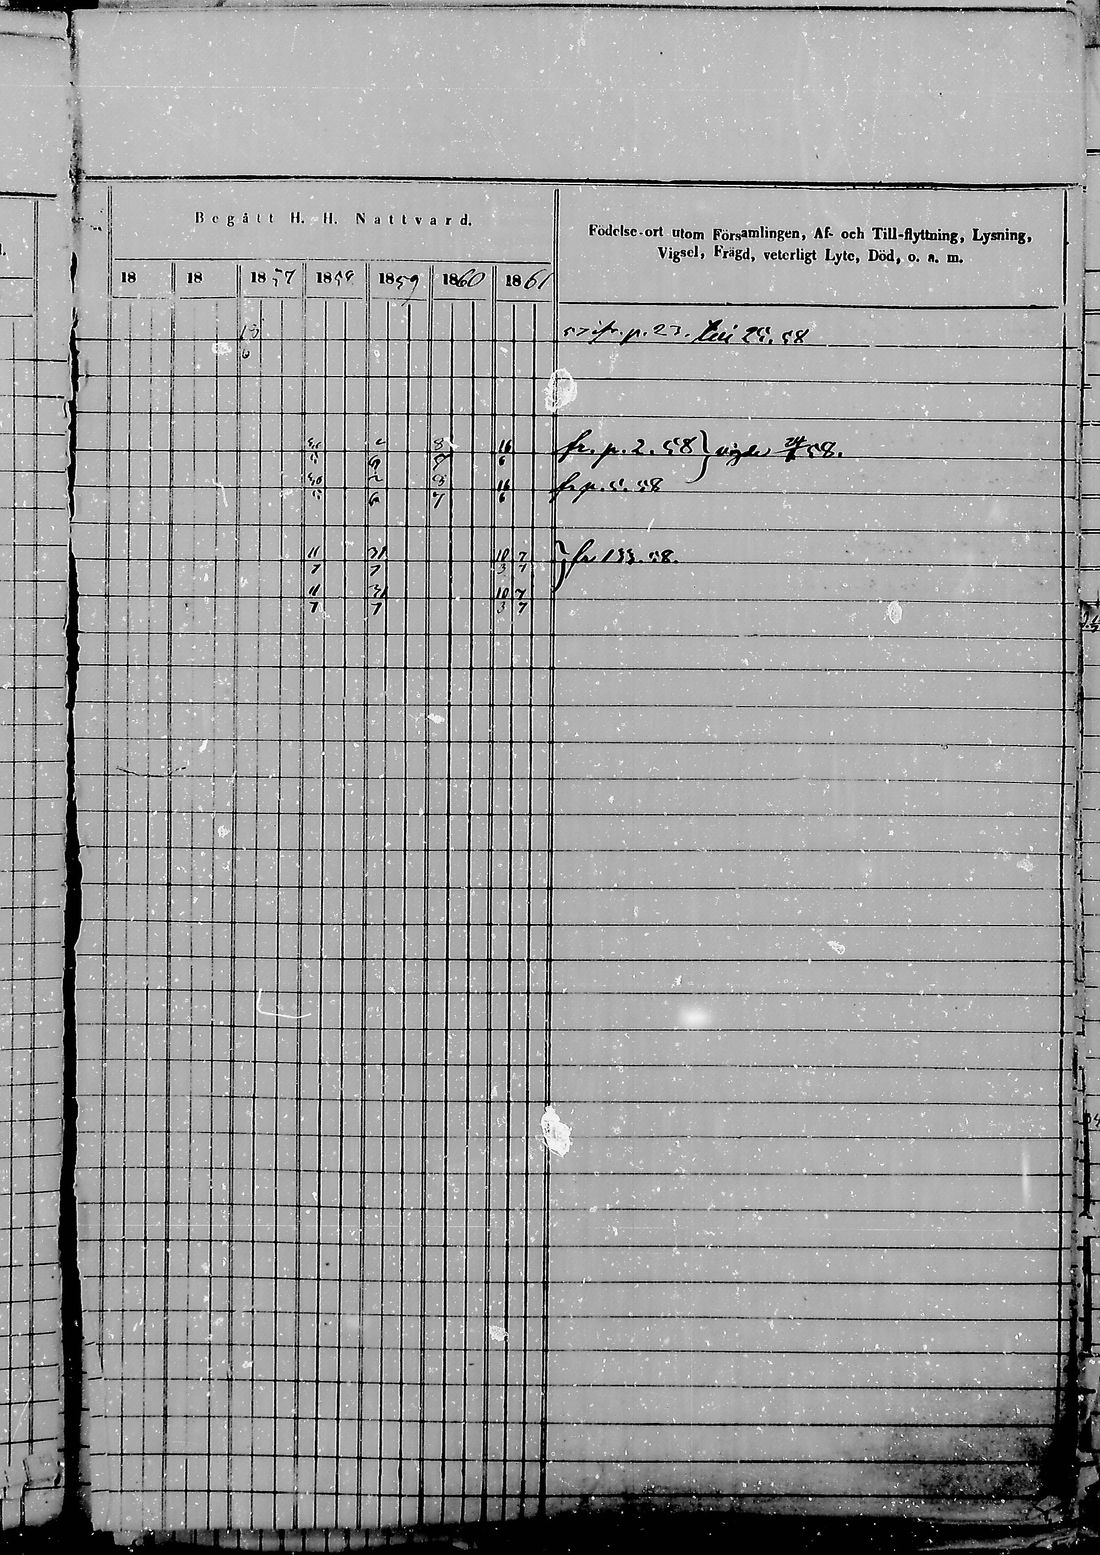 Begått H. H. Nattvard.
Födelse-ort utom Församlingen, Af- och Till-flyttning, Lysning,
Vigsel, Frägd, veterligt Lyte, Död, o. a. m.
18 18 1857 1858 1859 1860 1861
13 p. 23. 58
6
8 16 fr. p. 2. 58 } vigde 24/6 58.
5 6 7 6
16 fr. p. 5. 58
5 6 7 6
11 31 10 7 } fr 133. 58.
7 7 3 7
11 31 10 7
7 7 3 7